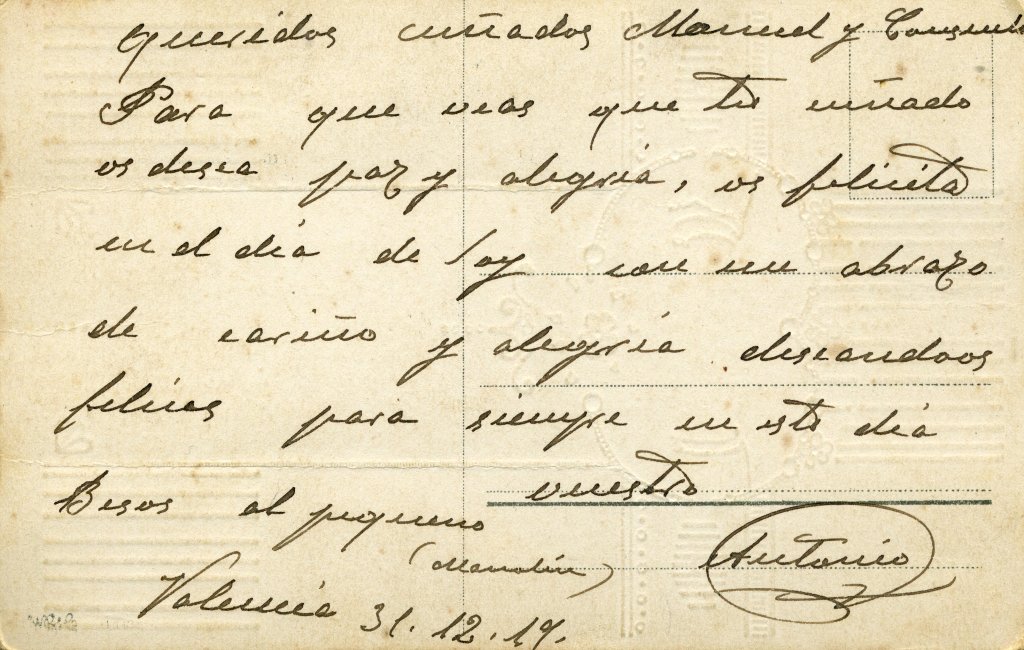 Queridos cuñados Manuel y Consuelo
Para que veas que tu cuñado
os desea paz y alegria, os felicita
en el día de hoy con un abrazo
de cariño y alegria deseandoos
felices para siempre en este día
vuestro
Besos al pequeno
(Manolin)
Antonio
Valencia 31.12.19.